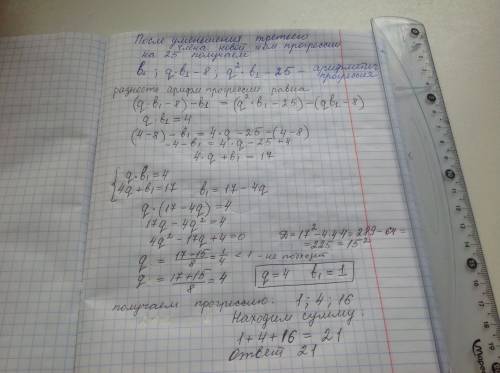 После уменьшения третьего
члена новой геом прогрессии
на 25 получаем
b₁ ; q·b₁-8 ; q²·b₁-25 - арифметич
прогрессия
разность арифм прогрессии равна
(q·b₁-8)-b₁ = (q²·b₁-25)-(qb₁-8)
q·b₁=4
(4-8)-b₁=4·q-25-(4-8)
-4-b₁=4·q-25+4
4·q+b₁=17
{ q·b₁=4
4q+b₁=17 b₁=17-4q
q·(17-4q)=4
17q-4q²=4
4q²-17q+4=0 D=17²-4·4·4=289-64=
=225=15²
q=(17-15)/8=1/4<1 - не подходит
q=(17+15)/8=4 q=4 b₁=1
получаем прогрессию. 1; 4; 16
Находим сумму.
1+4+16=21
Ответ 21